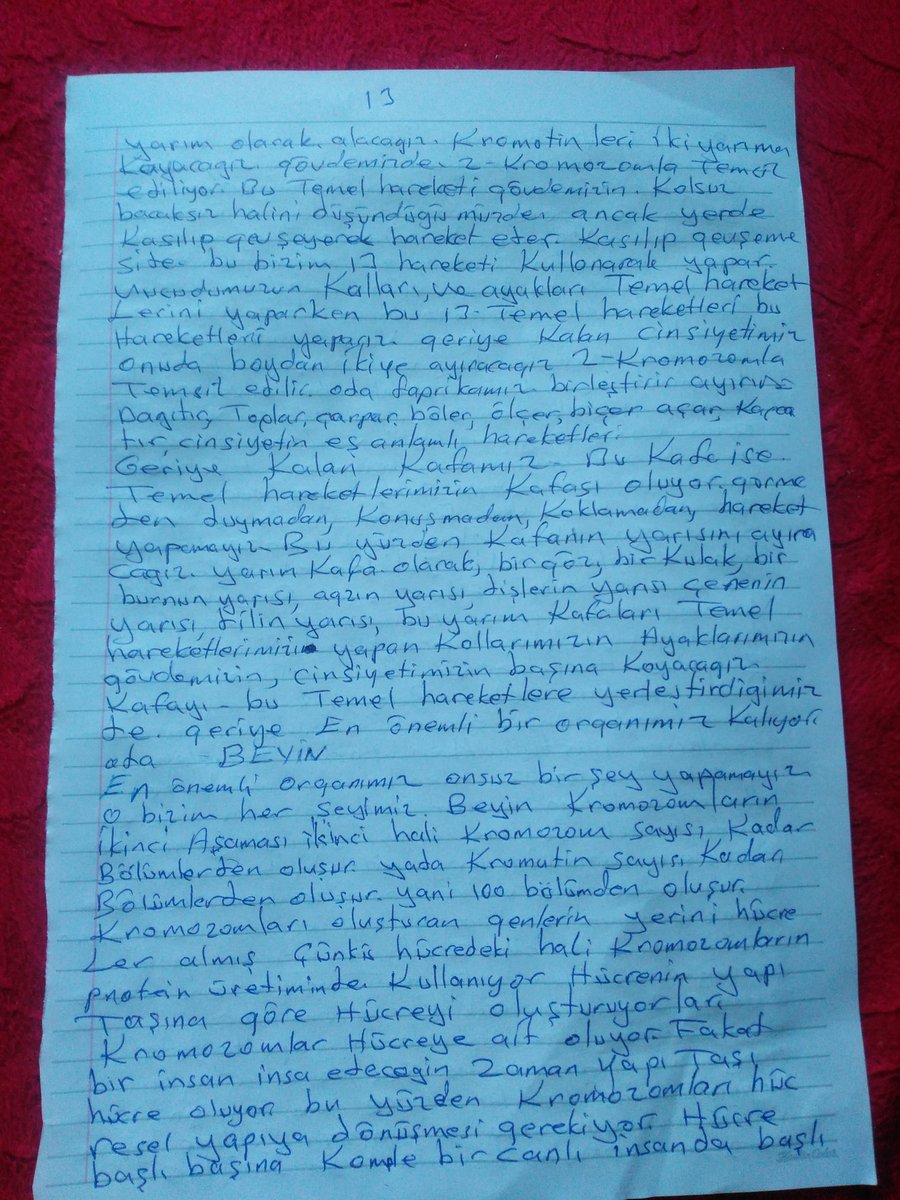 13
yarım olacak alacağız. Kromotin leri iki yarıma
Kayacağız gövdemizde. 2-Kromozomla Temsil
ediliyor. Bu Temel hareketi gövdemizin. Kolsuz
bacaksız halini düşündüğümüzden ancak yerde
Kasılıp gevşeyerek hareket eter. Kasılıp gevşeme
site. bu bizim 13 hareketi Kullanarak yapar.
vucudumuzun Kolları, ve ayakları Temel hareket
Lerini yaparken bu 13-Temel hareketleri bu
Hareketleri yapağız. geriye Kalan cinsiyetimiz
onuda boydan ikiye ayıracağız 2-Kromozomla
Temsil edilir. oda faprikamız birleştirir ayırır
Dağıtır, Toplar, çarpar, böler, ölçer, biçer açar, Kapa
tır, cinsiyetin eş anlamlı, hareketleri
Geriye Kalan Kafamız. Bu Kafa ise.
Temel hareketlerimizin Kafası oluyor. görme
den duymadan, Konuşmadan, Koklamadan, hareket
yapamayız. Bu yüzden Kafanın yarısını ayıra
cağız. yarım Kafa olarak, bir göz, bir Kulak, bir
burnun yarısı, ağzın yarısı, dişlerin yarısı çenenin
yarısı, dilin yarısı, bu yarım Kafaları Temel
hareketlerimizin yapan Kollarımızın Ayaklarımızın
gövdemizin, cinsiyetimizin başına Koyacağız.
Kafayı - bu Temel hareketlere yerleştirdiğimiz
te. geriye En önemli bir organımız Kalıyor.
oda - BEYİN
En önemli organımız onsuz bir şey yapamayız
o bizim her şeyimiz Beyin Kromozomların
ikinci Aşaması ikinci hali Kromozom sayısı Kadar
Bölümlerden oluşur. yada Kromutin sayısı Kadan
Bölümlerden oluşur. yani 100 bölümden oluşur.
Kromozomları oluşturan genlerin yerini hücre
Ler almış Çünkü hücredeki hali Kromozomların
protein üretiminde Kullanıyor Hücrenin yapı
Taşına göre Hücreyi oluşturuyorlar.
Kromozomlar Hücreye ait oluyor. Fakat
bir insan insa edeceğin zaman yapı Taşı
hücre oluyor. bu yüzden Kromozomları hüc
resel yapıya dönüşmesi gerekiyor. Hücre
başlı başına Komple bir canlı insanda başlı